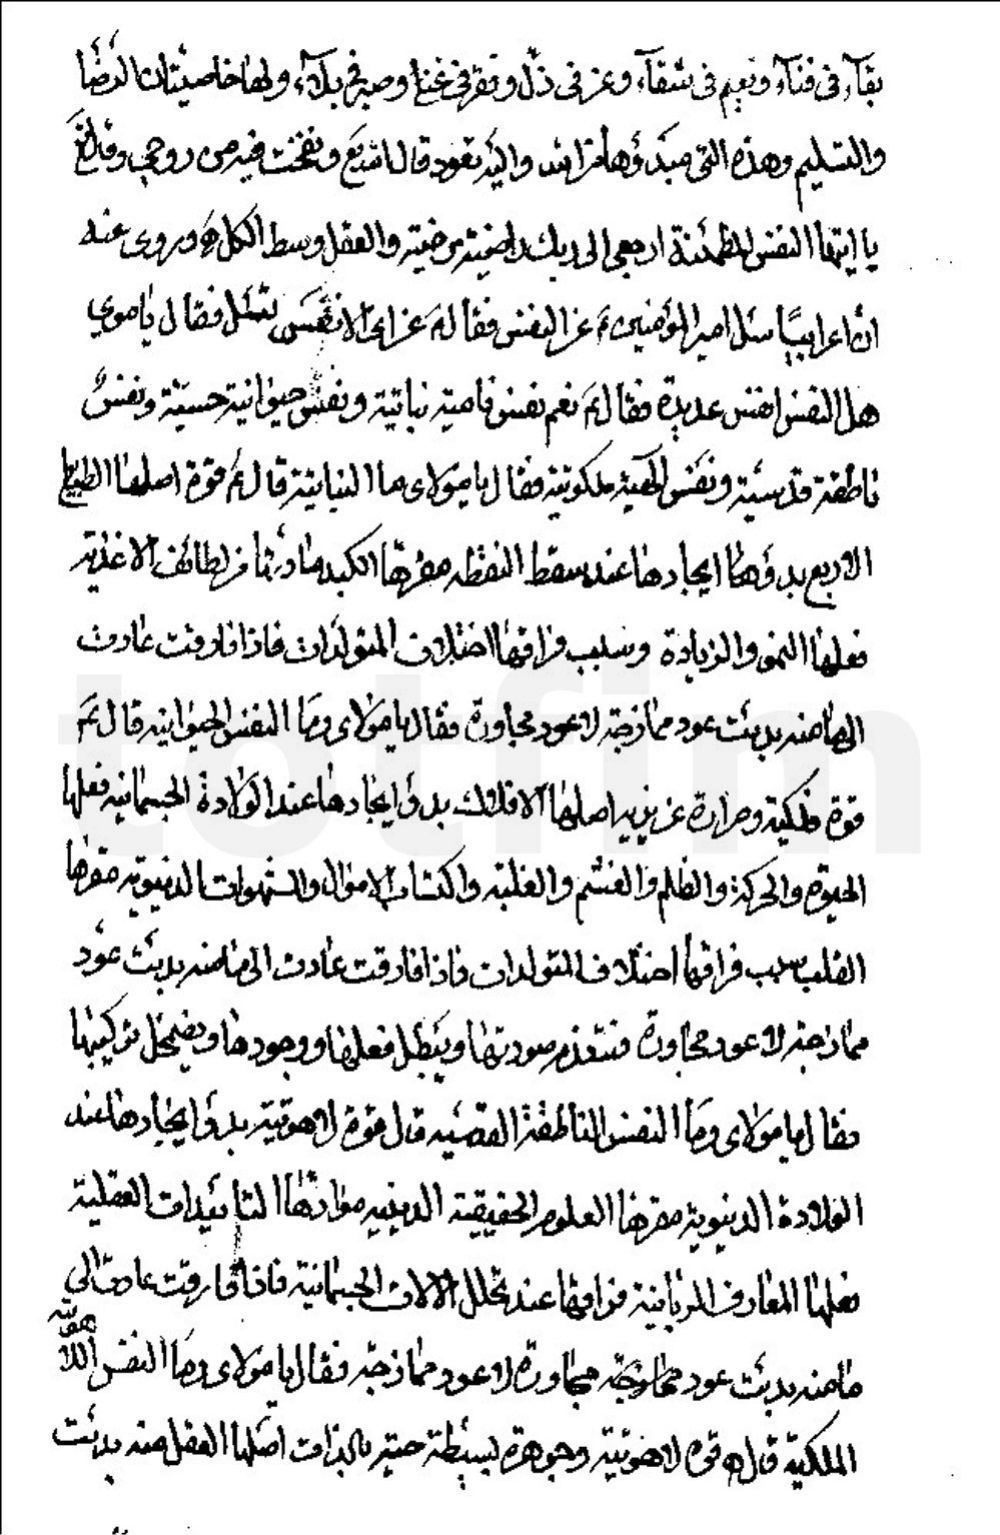 بقآء فى فنآء ونعيم فى شقآء وعز فى ذلّ وفقر فى غناء وصبر فى بلآء ولها خاصيتان الرضا
والتسليم وهذه التى مبدؤها من الله واليه تعود قال الله تع ونفخت فيه من روحى وقال تع
يا ايتها النفس المطمئنة ارجعى الى ربك راضية مرضية والعقل وسط الكل وروى عنه
ان اعرابيّا سئل امير المؤمنين ع عن النفس فقال ع عن اىّ الانفس تسئل فقال يا مولاي
هل النفس انفس عديدة فقال ع نعم نفس نامية نباتية ونفس حيوانية حسيّة ونفسٌ
ناطقة قدسيّة ونفس الهيّة ملكوتية فقال يا مولاى ما النباتية قال ع قوّة اصلها الطبايع
الاربع بدؤها ايجادها عند سقط النطفة مقرّها الكبد مادتها من لطائف الاغذية
فعلها النمو والزيادة وسبب فراقها اختلاف المتولّدات فاذا فارقت عادت
الى ما منه بدئت عود ممازجة لا عود مجاورة فقال يا مولاى وما النفس الحيوانية قال ع
قوة فلكية وحرارة عزيزية اصلها الافلاك بدؤ ايجادها عند الولادة الجسمانية فعلها
الحيوة والحركة والظلم والغشم والغلبة واكتساب الاموال والشهوات الدنيوية مقرها
القلب سبب فراقها اختلاف المتولدات فاذا فارقت عادت الى ما منه بدئت عود
ممازجة لا عود مجاورة فتنعدم صورتها ويبطل فعلها ووجودها ويضمحل تركيبها
فقال يا مولاى وما النفس الناطقة القدسية قال قوة لاهوتية بدؤ ايجادها عند
الولادة الدنيوية مقرها العلوم الحقيقية الدينية موادّها التأييدات العقلية
فعلها المعارف الربانية فراقها عند تحلل الالات الجسمانية فاذا فارقت عادت الى
ما منه بدئت عود مجاورة لا عود ممازجة فقال يا مولاى وما النفس اللاهوتية
الملكية قال قوة لاهوتية وجوهرة بسيطة حية بالذات اصلها العقل منه بدئت
totfim